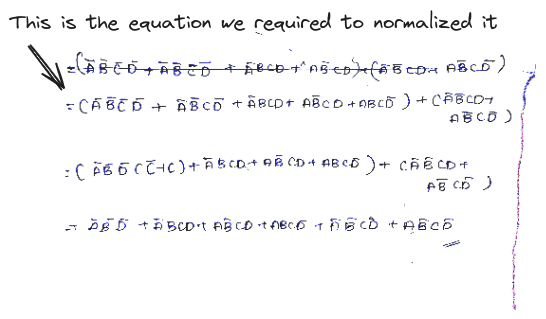 This is the equation we required to normalized it
= (A̅B̅C̅D̅ + A̅B̅CD̅ + A̅BCD + AB̅CD + ABCD̅) + (A̅B̅CD +
AB̅CD̅)
= (A̅B̅D̅(C̅+C) + A̅BCD + AB̅CD + ABCD̅) + (A̅B̅CD +
AB̅CD̅)
= A̅B̅D̅ + A̅BCD + AB̅CD + ABCD̅ + A̅B̅CD + AB̅CD̅